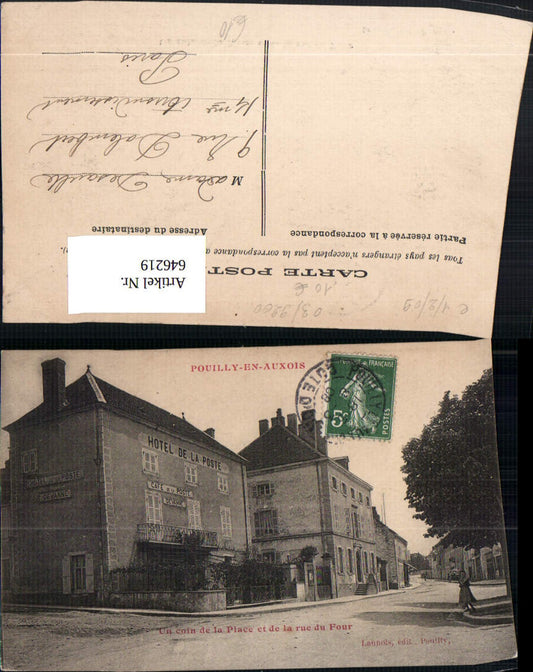 CARTE POST
Tous les pays étrangers n'acceptent pas la correspondance a
Partie réservée à la correspondance
Adresse du destinataire
Madame Desaulle
9. Rue Dalembert
14me Arrondissement
Paris
Artikel Nr.
646219
POUILLY-EN-AUXOIS
5c
POSTES
HOTEL DE LA POSTE
CAFE DE LA POSTE
Un coin de la Place et de la rue du Four
Lannois, édit. Pouilly.